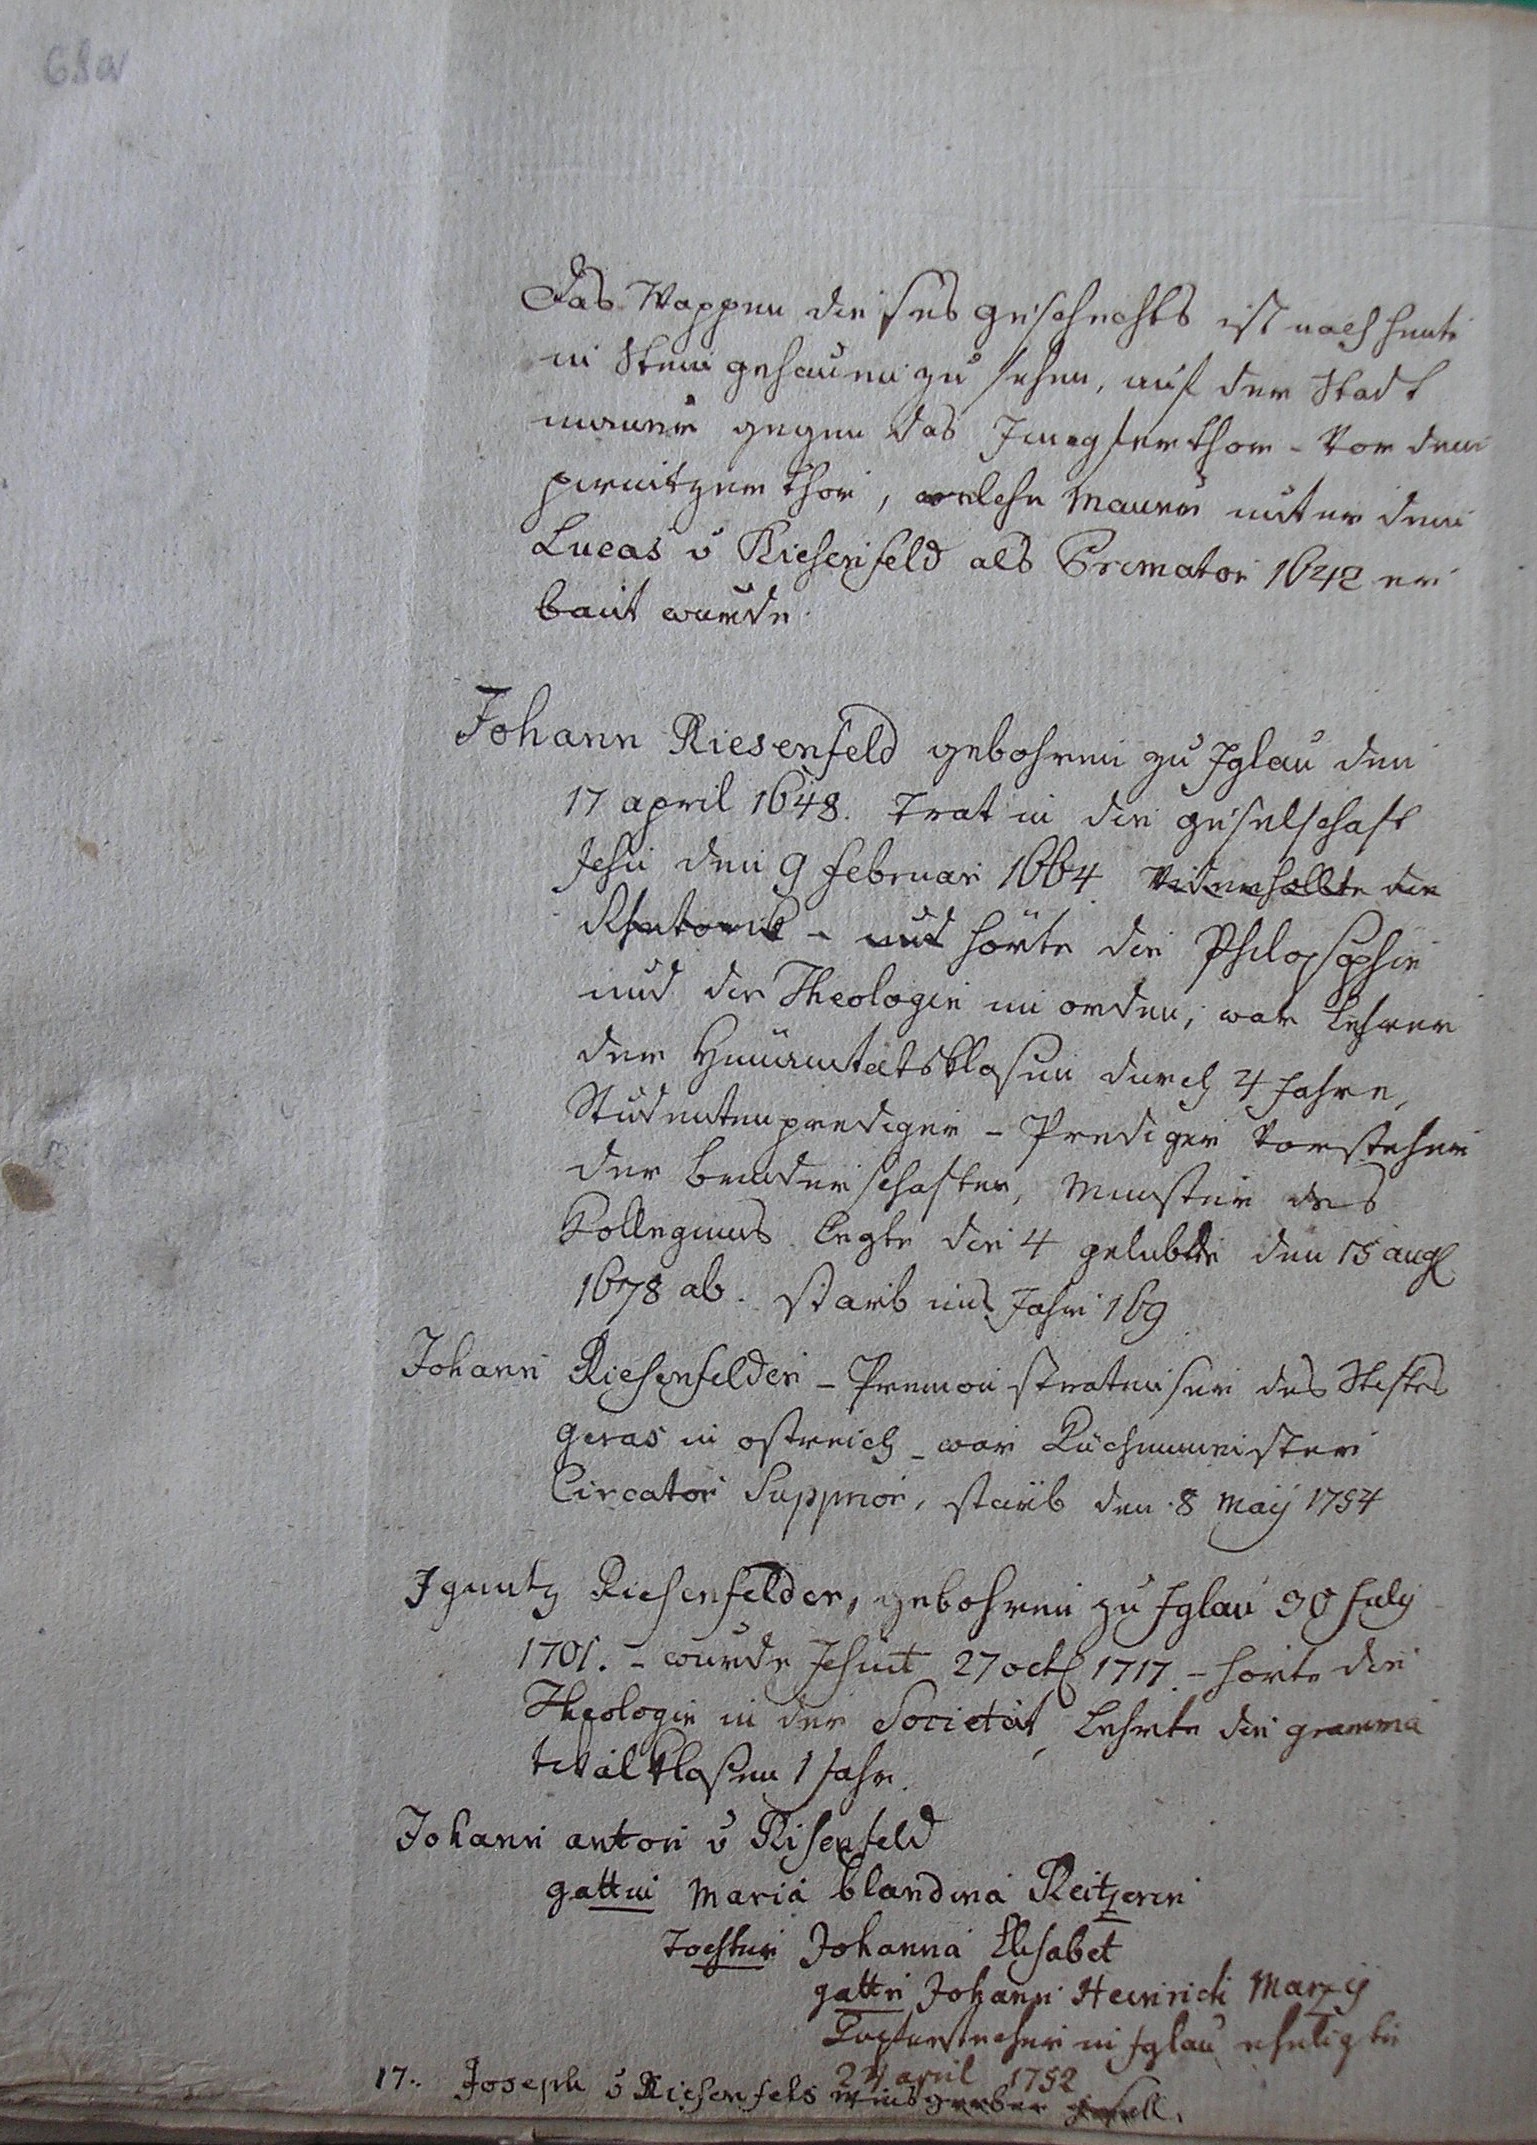 68a
Das Wappen dieses geschechts ist noch heute
in Stein gehauen zu sehen, auf der Stadt
mauer gegen das Jungferthor - Vor dem
pirnitzer thor, welche Mauer unter dem
Lucas v Riesenfeld als Primator 1642 er
baut wurde
Johann Riesenfeld gebohren zu Jglau den
17 april 1648. Trat in die geselschaft
Jesu den 9 februar 1664. Widerhollte die
Rhetorik - und hörte die Philosophie
und die Theologie im orden, war Lehrer
der Humanitätsklassen durch 4 Jahre,
Studentenprediger - Prediger Vorsteher
der bruderschaften, Minister des
Kollegiums legte die 4 gelubde den 15 aug
1678 ab. starb im Jahr 169
Johann Riesenfelder - Premonstratenser des Stiftes
Geras in ostreich - war Küchenmeister
Circator Supprior, starb den 8 Maÿ 1754
Jgnatz Riesenfelder, gebohren zu Jglau 30 July
1701. - wurde Jesuit 27 oct 1717 - horte die
Theologie in der Societät, Lehrte die gramma
tikal klassen 1 Jahr.
Johann anton v Risenfeld
gattin Maria blandina Reitzerin
Tochter Johanna Elisabet
gatte Johann Heinrich Marzÿ
Kupferstecher in Jglau ehligte
24 april 1752
17. Joseph v Riesenfels Weisgerber gesell.